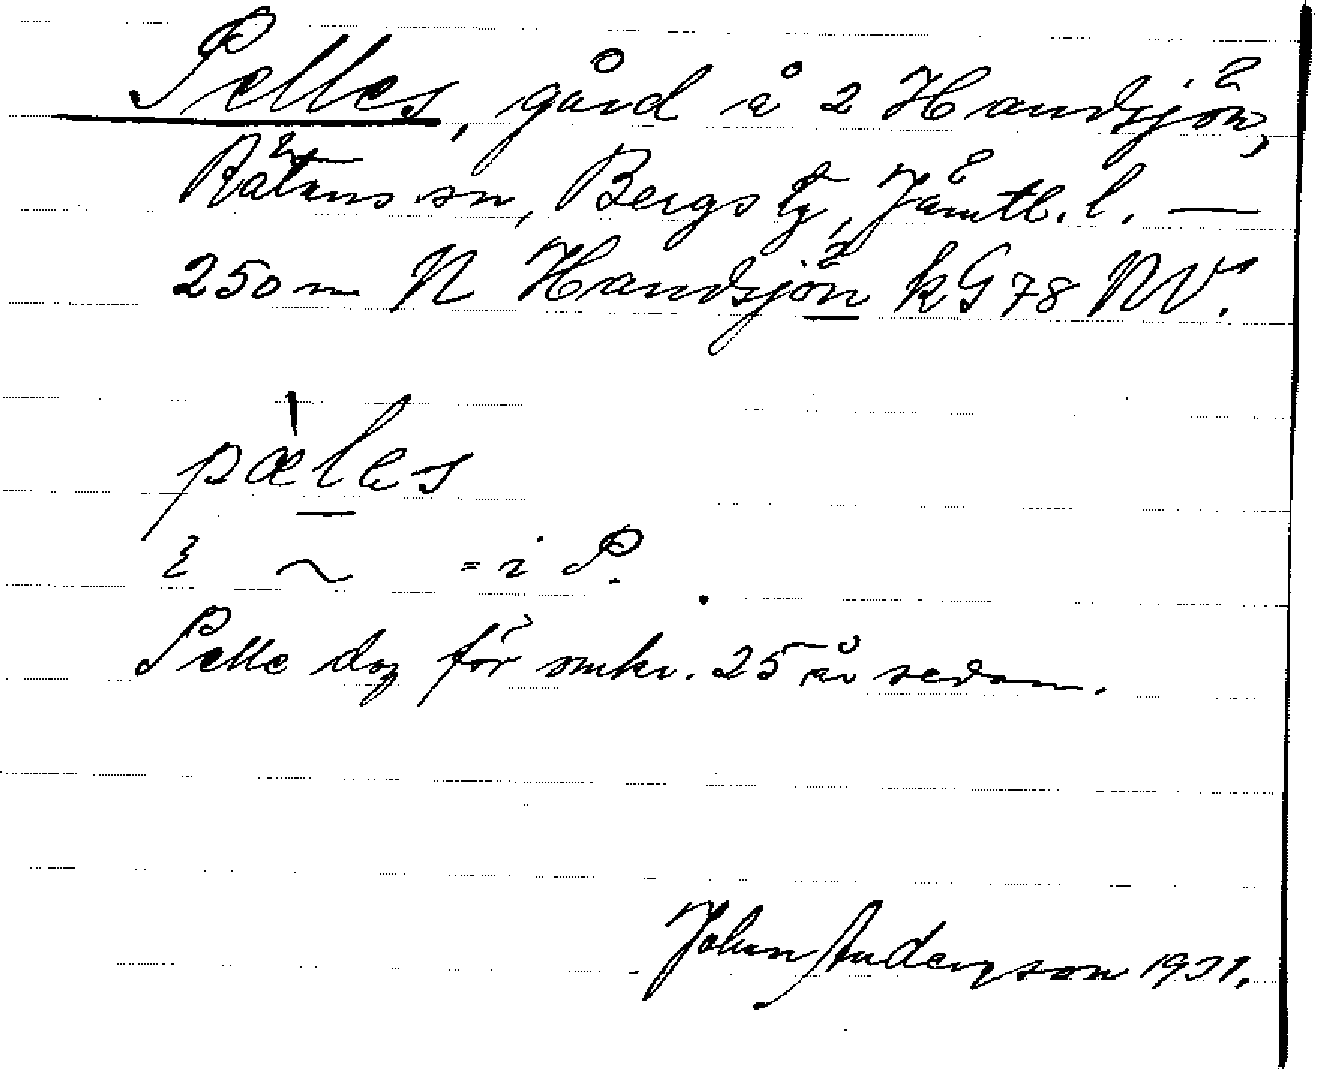 Pelles, gård å 2 Handsjön,
Rätans sn, Bergs tg, Jämtl. l. —
250 m N Handsjön kG78 NV.
pæ̀les
i ~ = i P.
Pelle dog för omkr. 25 år sedan.
Johan Anderson 1931.